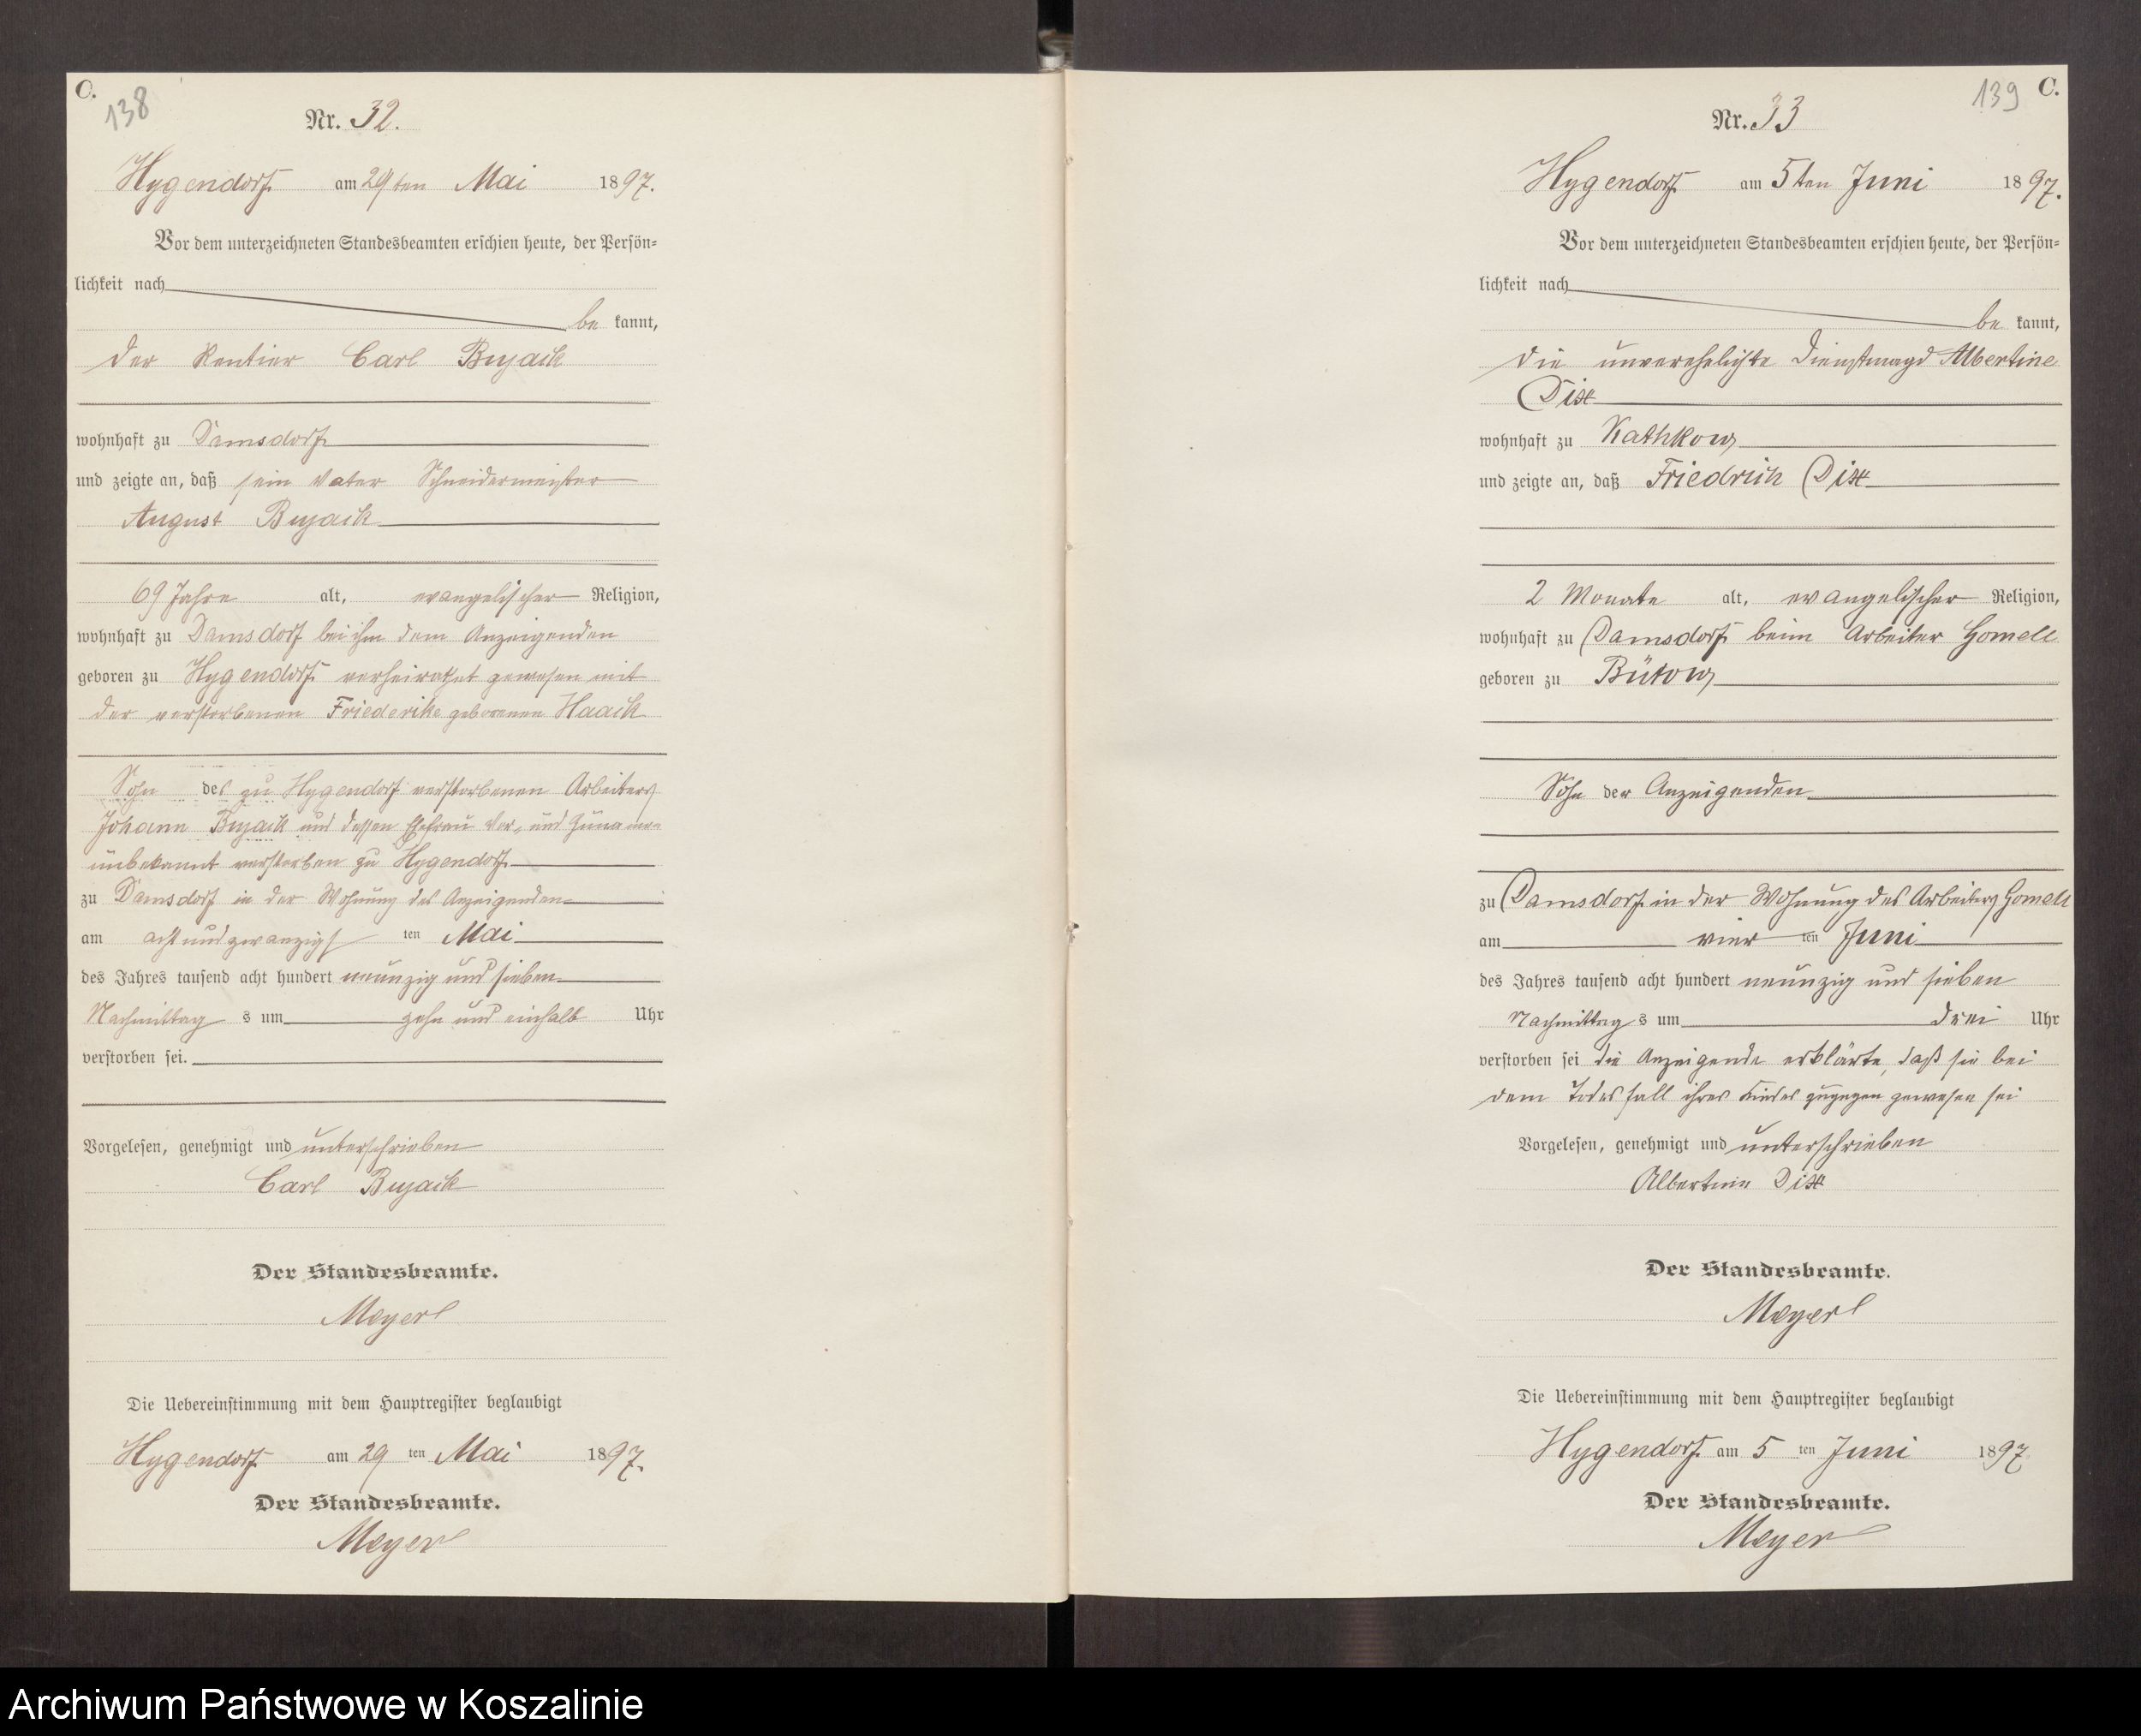 C.
138
Nr. 32.
Hygendorf am 29ten Mai 1897.
Vor dem unterzeichneten Standesbeamten erschien heute, der Persön-
lichkeit nach
be kannt,
der Rentier Carl Bujack
wohnhaft zu Damsdorf
und zeigte an, daß sein Vater Schneidermeister
August Bujack
69 Jahre alt, evangelischer Religion,
wohnhaft zu Damsdorf bei ihm dem Anzeigenden
geboren zu Hygendorf verheirathet gewesen mit
der verstorbenen Friederike geborenen Haack
Sohn des zu Hygendorf verstorbenen Arbeiters
Johann Bujack und dessen Ehefrau Vor- und Zuname
unbekannt verstorben zu Hygendorf
zu Damsdorf in der Wohnung des Anzeigenden
am acht und zwanzigsten Mai
des Jahres tausend acht hundert neunzig und sieben
Nachmittag s um zehn und einhalb Uhr
verstorben sei.
Vorgelesen, genehmigt und unterschrieben
Carl Bujack
Der Standesbeamte.
Meyer
Die Uebereinstimmung mit dem Hauptregister beglaubigt
Hygendorf am 29 ten Mai 1897.
Der Standesbeamte.
Meyer
139 C.
Nr. 33
Hygendorf am 5ten Juni 1897.
Vor dem unterzeichneten Standesbeamten erschien heute, der Persön-
lichkeit nach
be kannt,
die unverehelichte Dienstmagd Albertine
Dix
wohnhaft zu Kathkow
und zeigte an, daß Friedrich Dix
2 Monate alt, evangelischer Religion,
wohnhaft zu Damsdorf beim Arbeiter Gomell
geboren zu Bütow
Sohn der Anzeigenden
zu Damsdorf in der Wohnung des Arbeiters Gomell
am vier ten Juni
des Jahres tausend acht hundert neunzig und sieben
Nachmittag s um drei Uhr
verstorben sei die Anzeigende erklärte, daß sie bei
dem Todesfall ihres Kindes zugegen gewesen sei
Vorgelesen, genehmigt und unterschrieben
Albertine Dix
Der Standesbeamte.
Meyer
Die Uebereinstimmung mit dem Hauptregister beglaubigt
Hygendorf am 5 ten Juni 1897
Der Standesbeamte.
Meyer
Archiwum Państwowe w Koszalinie